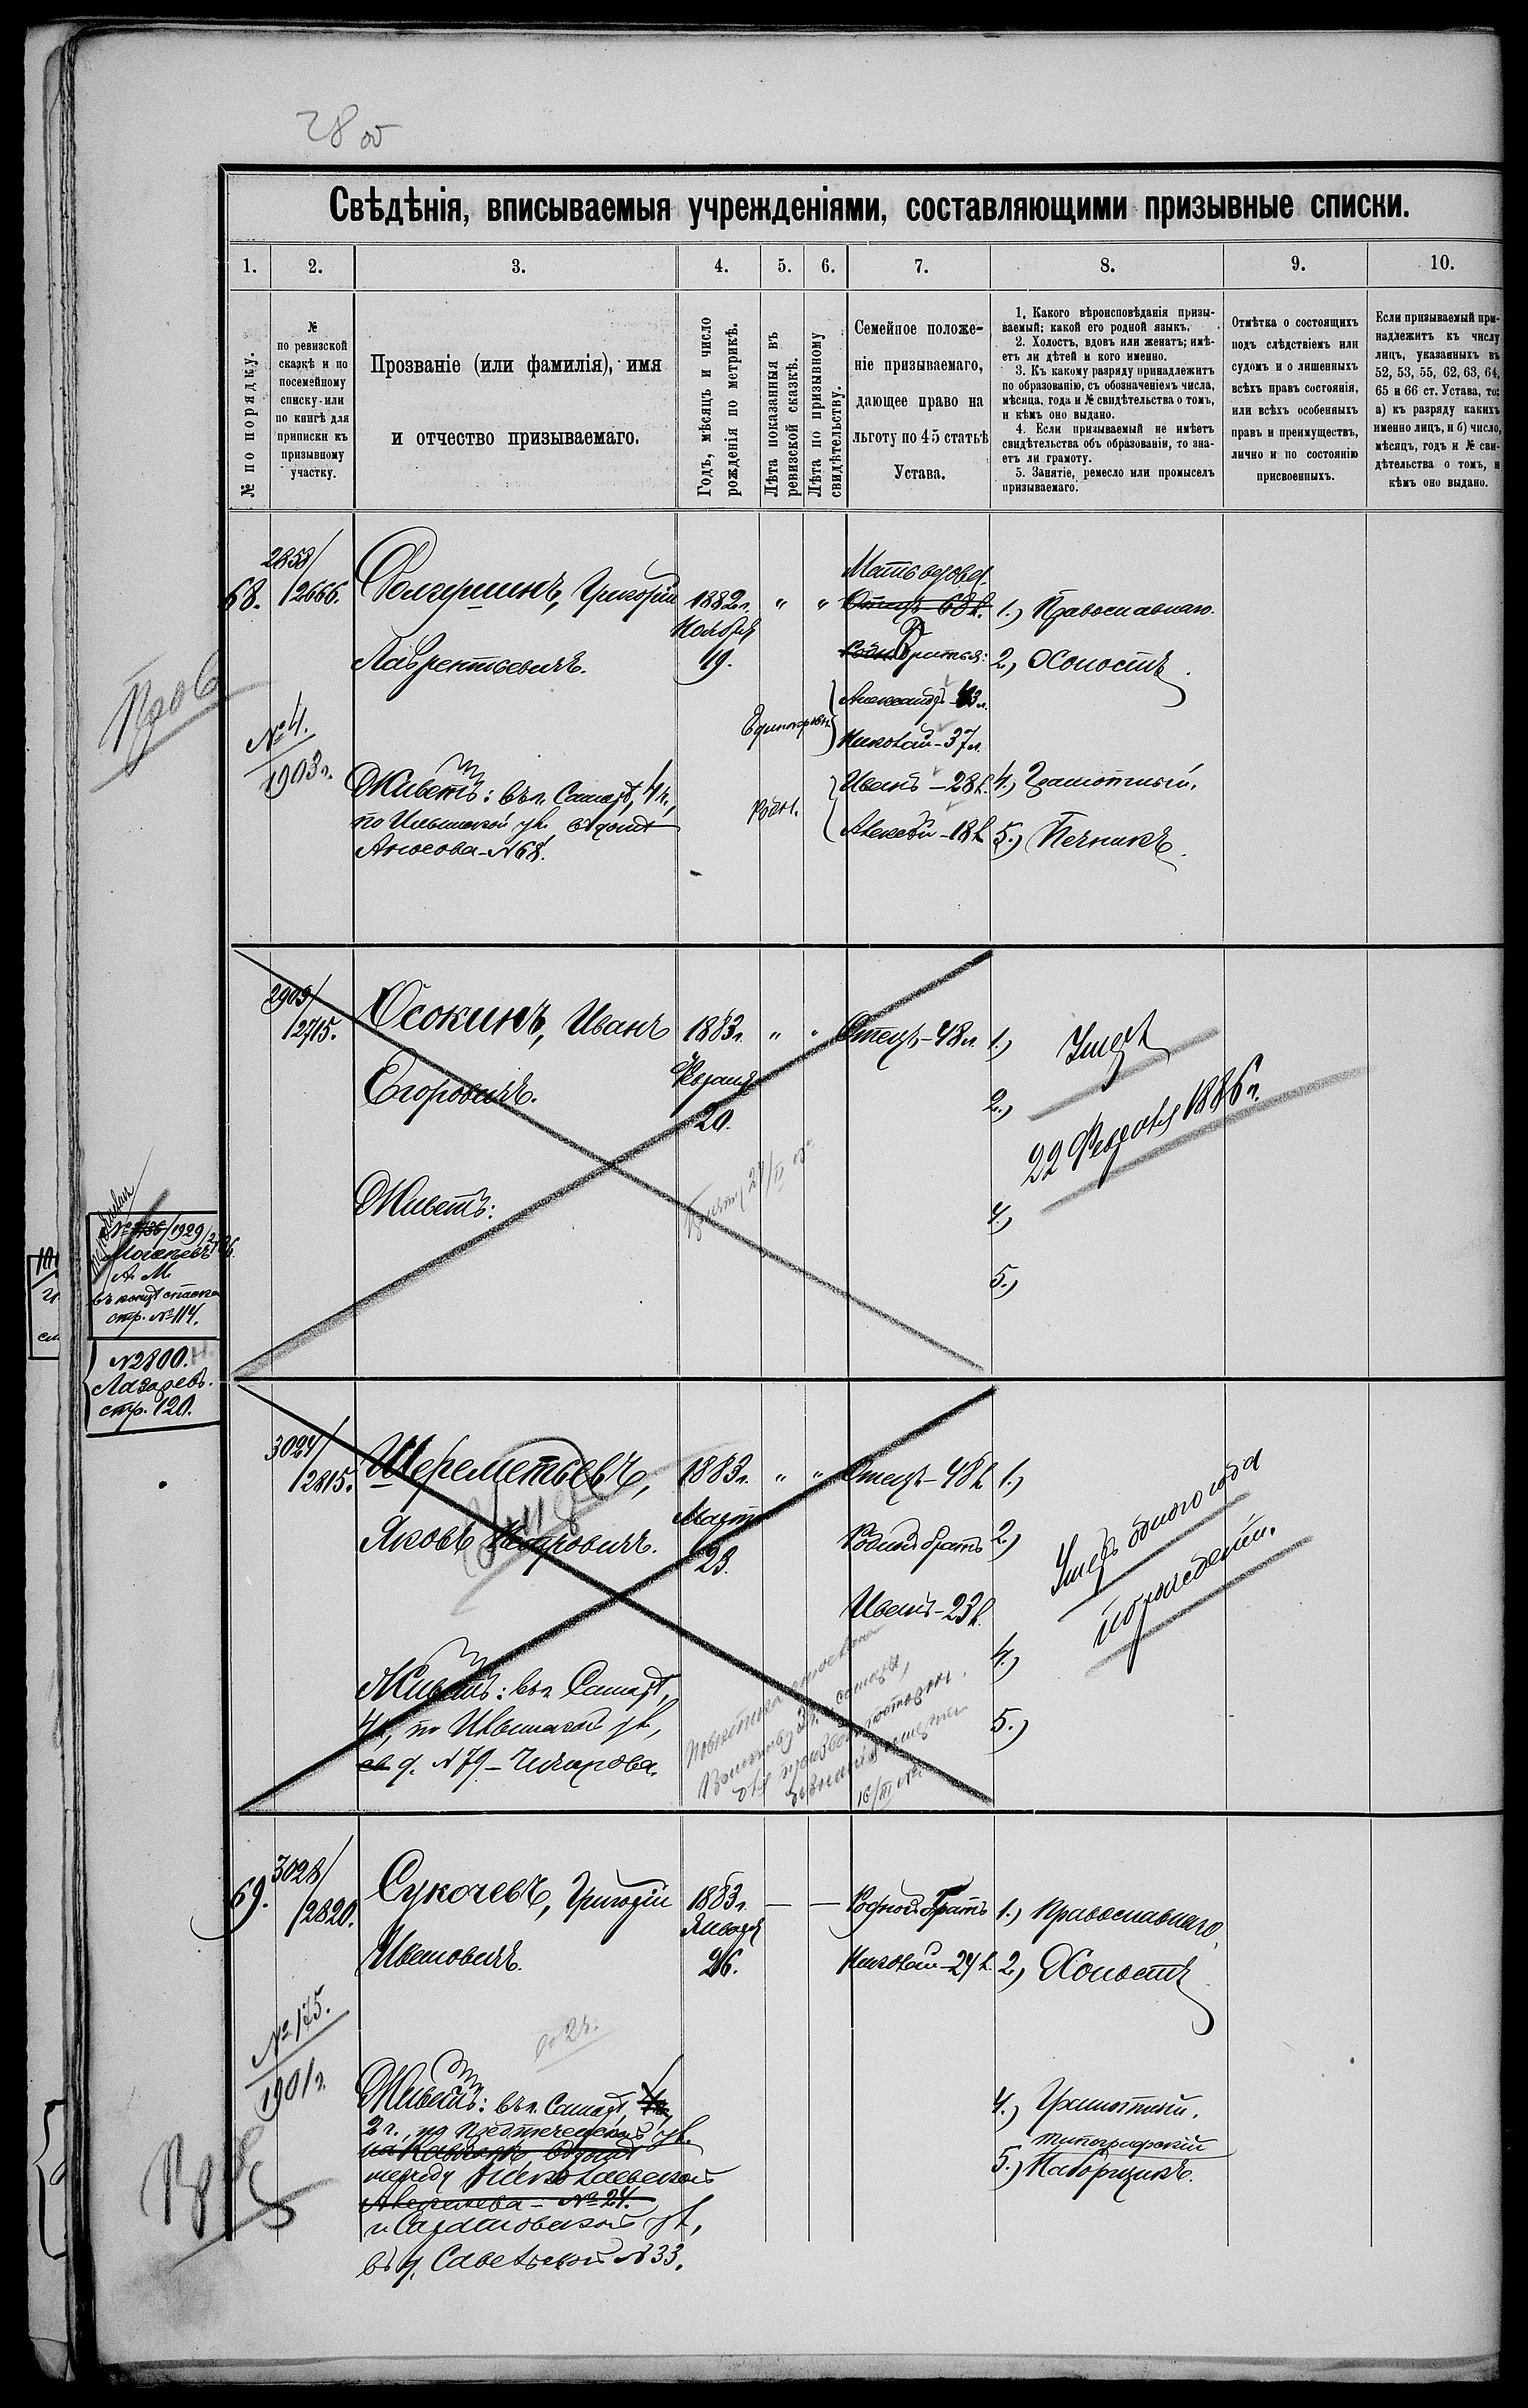 28 об
Свѣдѣнія, вписываемыя учрежденіями, составляющими призывные списки.
1. 2. 3. 4. 5. 6. 7. 8. 9. 10.
№ по порядку.
№
по ревизской
сказкѣ и по
посемейному
списку или
по книгѣ для
приписки къ
призывному
участку.
Прозваніе (или фамилія), имя
и отчество призываемаго.
Годъ, мѣсяцъ и число
рожденія по метрикѣ.
Лѣта показанныя въ
ревизской сказкѣ.
Лѣта по призывному
свидѣтельству.
Семейное положе-
ніе призываемаго,
дающее право на
льготу по 45 статьѣ
Устава.
1. Какого вѣроисповѣданія призы-
ваемый; какой его родной языкъ.
2. Холостъ, вдовъ или женатъ; имѣ-
етъ ли дѣтей и кого именно.
3. Къ какому разряду принадлежитъ
по образованію, съ обозначеніемъ числа,
мѣсяца, года и № свидѣтельства о томъ,
и кѣмъ оно выдано.
4. Если призываемый не имѣетъ
свидѣтельства объ образованіи, то зна-
етъ ли грамоту.
5. Занятіе, ремесло или промыселъ
призываемаго.
Отмѣтка о состоящихъ
подъ слѣдствіемъ или
судомъ и о лишенныхъ
всѣхъ правъ состоянія,
или всѣхъ особенныхъ
правъ и преимуществъ,
лично и по состоянію
присвоенныхъ.
Если призываемый при-
надлежитъ къ числу
лицъ, указанныхъ въ
52, 53, 55, 62, 63, 64,
65 и 66 ст. Устава, то:
а) къ разряду какихъ
именно лицъ, и б) число,
мѣсяцъ, годъ и № сви-
дѣтельства о томъ, и
кѣмъ оно выдано.
68.
2858/
/2666.
Григорій
Лаврентьевичъ.
1882 г.
Ноября
19.
" "
Мать вдова.
Отецъ 68 л.
братья:
Александръ - 43 л.
Единокровн.
Николай - 37 л.
Родн.
Иванъ - 28 л.
Алексѣй - 18 л.
1.) Православнаго.
2.) Холостъ.
4.) Грамотный.
5.) Печникъ.
№ 4.
1903 г.
Живетъ: въ г. Самарѣ, 4 ч.,
по Ильинской ул. въ домѣ
Аносова - № 68.
2903/
/2715.
Осокинъ, Иванъ
Егоровичъ.
1883 г.
Февраля
20.
" "
Отецъ - 48 л.
1.) Умеръ
2.)
22 Февраля 1886 г.
4.)
5.)
Живетъ:
/1929/
А. М.
въ концѣ списка
стр. № 114.
№ 2800.
Лазаревъ.
стр. 120.
3024/
/2815.
Шереметьевъ,
Яковъ Петровичъ.
1883 г.
Марта
23.
" "
Отецъ - 48 л.
Родной братъ
Иванъ - 23 л.
1.)
2.)
4.)
5.)
Умеръ одного года
по рожденіи.
Живетъ: въ г. Самарѣ,
4 ч., по Ильинской ул.,
въ д. № 79 -
69.
3028/
/2820.
Сукачевъ, Григорій
Ивановичъ.
1883 г.
Января
26.
— —
Родной братъ
Николай - 24 л.
1.) Православнаго.
2.) Холостъ
4.) Грамотный.
типографскій
5.) Наборщикъ.
№ 175.
1901 г.
во 2 ч.
Живетъ: въ г. Самарѣ, 4 ч.
2 ч., по Предтеченской ул.
между Николаевской
№ 24.
и Саратовской ул.,
въ д. Савельевой № 33.